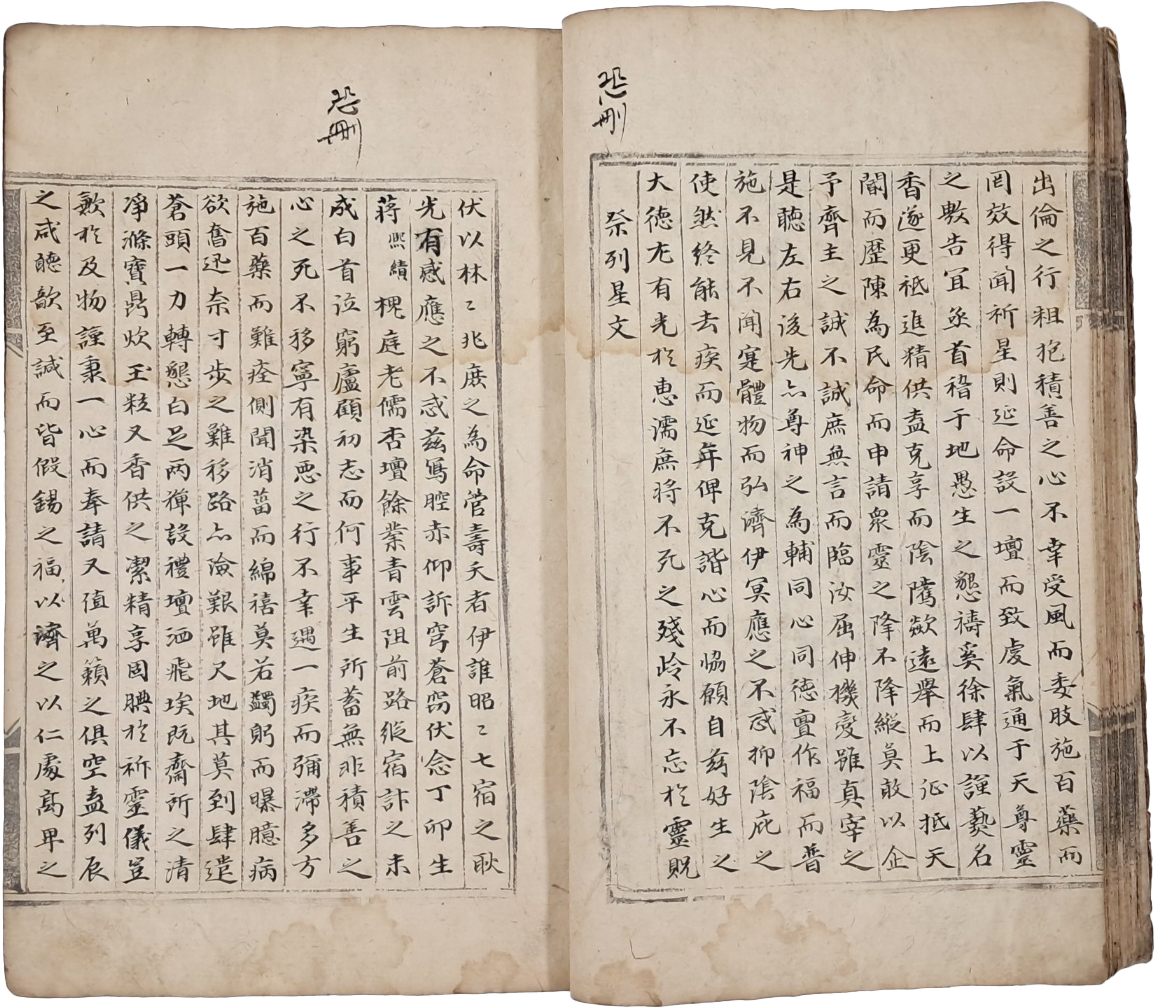 恐刪
出倫之行粗抱積善之心不幸受風而委肢施百藥而
罔效得聞祈星則延命設一壇而致虔氣通于天尊靈
之敷告冝丞首稽于地愚生之懇禱奚徐肆以謹爇名
香遂更祗進精供盍克享而陰騭歘遠舉而上征抵天
閽而歷陳為民命而申請衆靈之降不降縱莫敢以企
予齊主之誠不誠庶無言而臨汝屈伸機變雖真宰之
是聽左右後先亦尊神之為輔同心同德亶作福而普
施不見不聞寔體物而弘濟伊冥應之不忒抑陰庇之
使然終能去疾而延年俾克諧心而恊願自玆好生之
大德尤有光於惠濡庶將不死之殘岭永不忘於靈貺
祭列星文
恐刪
伏以林〻兆庶之為命管壽夭者伊誰昭〻七宿之耿
光有感應之不忒茲寫腔赤仰訴穹蒼窃伏念丁卯生
蒋熈績槐庭老儒杏壇餘業青雲阻前路縱宿計之未
成白首泣窮廬顧初志而何事平生所蓄無非積善之
心之死不移寧有染悪之行不幸遇一疾而彌滯多方
施百藥而難痊側聞消葘而綿禧莫若蠲躬而曝臆病
欲奮迅奈寸步之難移路亦險艱雖尺地其莫到肆遣
蒼頭一力轉懇白足两禪設禮壇洒飛埃既齋所之清
凈滌寶鼎炊玉粒又香供之潔精享固腆於祈靈儀豈
歉於及物謹秉一心而奉請又值萬籟之俱空盍列辰
之咸聽歆至誠而皆假錫之福以濟之以仁處高卑之